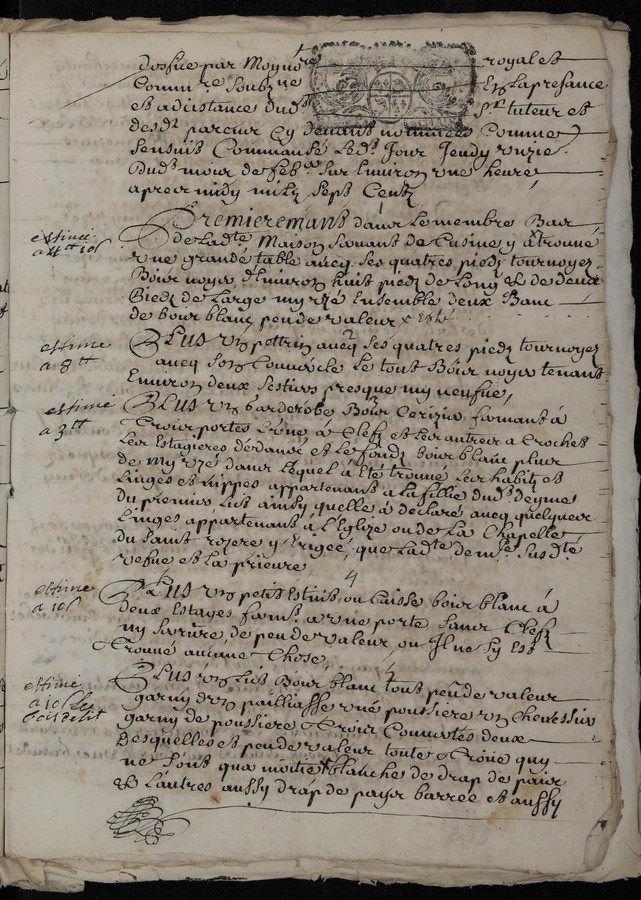 dosfue par Moy no^re royal et
Comm^re soubz^ne En la presance
et adcistance dud^t s^r tuteur et
desd^t parans cy devant nommées Comme
sensuit Commansé Led^t Jour Jeudy unzie
dud^t mois de feb^er sur Environ une heure
apres midy mil Sept Cent
Premieremant dans Le membre Bas
de Lad^te Maison servant de Cusine y a trouvé
une grande table avecq ses quatres piedz tournoyez
Bois noyer d'Environ huit piedz de Long et de deux
Piedz de Large my uzé Ensemble deux Banc
de bois blanc peu de valleur
estimé
a 10^s
Plus un pettrin avecq ses quatres piedz tournoyez
avecq son Couvercle Le tout Bois noyer tenant
Environ deux sestiers presque my neufue,
estimé
a 8^tt
Plus un Garderobe Bois Cerizier fermant à
Trois portes L'une à Clefz et Les autres a Crochet
Les Estagieres dedans et Le fondz bois blanc plus
de my uzé dans Lequel à Eté trouvé Les habitz et
Linges et Nippes appartenant a La fillie dud^t deyme
du premier Lict ainsy quelle à déclaré avecq quelques
Linges appartenant à L'Eglize ou de La Chapelle
du Saint rozere y Erigée, que Lad^te dem^lle susd^te
vefue est La prieure
estimé
a 3^tt
Plus un petit Estuis ou Caisse bois blanc à
deux Estages ferm^t a une porte sans Clefz
ny sarrure, de peu de valleur, ou Il ne sy Est
Trouvé aucune Chose,
estimé
a 10^s
Plus un Lict Bois blanc tout peu de valleur
garny d'un pailliasse une poussiere un Chevessier
garny de poussiere Trois Couvertes deux
Desquelles et peu de valleur toute Trouée quy
ne sont qua moitié blanche de drap de pais
et L'autres aussy drap de pays barrée et aussy
estimé
a 10^s Le
bois de lit